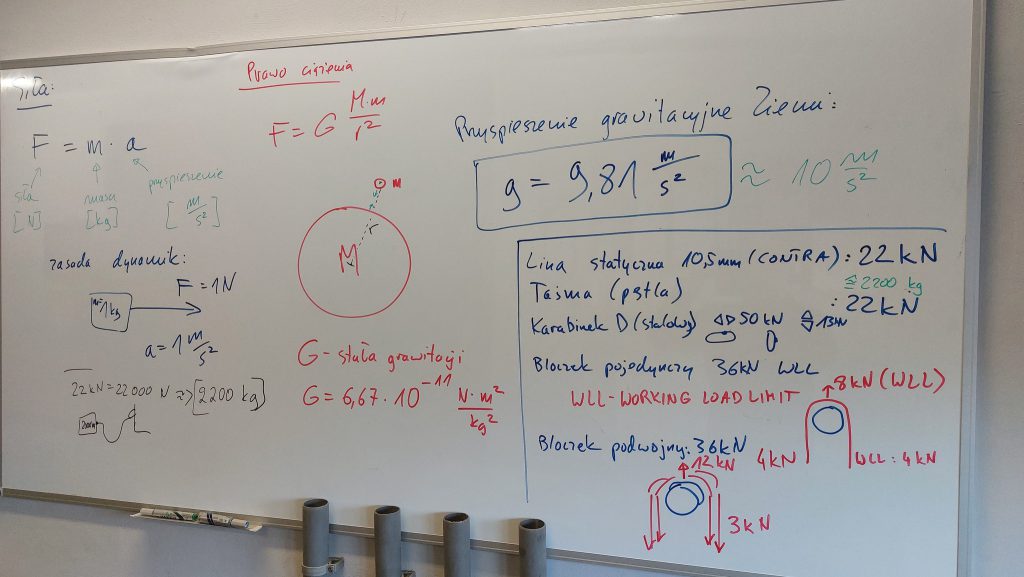 Siła:
F = m · a
siła
[N]
masa
[kg]
przyspieszenie
[m/s²]
zasada dynamik:
m=1kg
F = 1N
a = 1 m/s²
22kN = 22 000 N => [2200 kg]
Prawo ciążenia
F = G M·m/r²
m
r
M
G - stała grawitacji
G = 6,67 · 10⁻¹¹ N·m²/kg²
Przyspieszenie grawitacyjne Ziemi:
g = 9,81 m/s² ≈ 10 m/s²
Lina statyczna 10,5mm (CONTRA) : 22kN
≈ 2200 kg
Taśma (pętla) : 22kN
Karabinek D (stalowy) 50kN 13kN
Bloczek pojedynczy 36kN WLL
WLL-WORKING LOAD LIMIT
8kN (WLL)
4kN
WLL: 4kN
Bloczek podwójny: 36kN
12kN
3kN